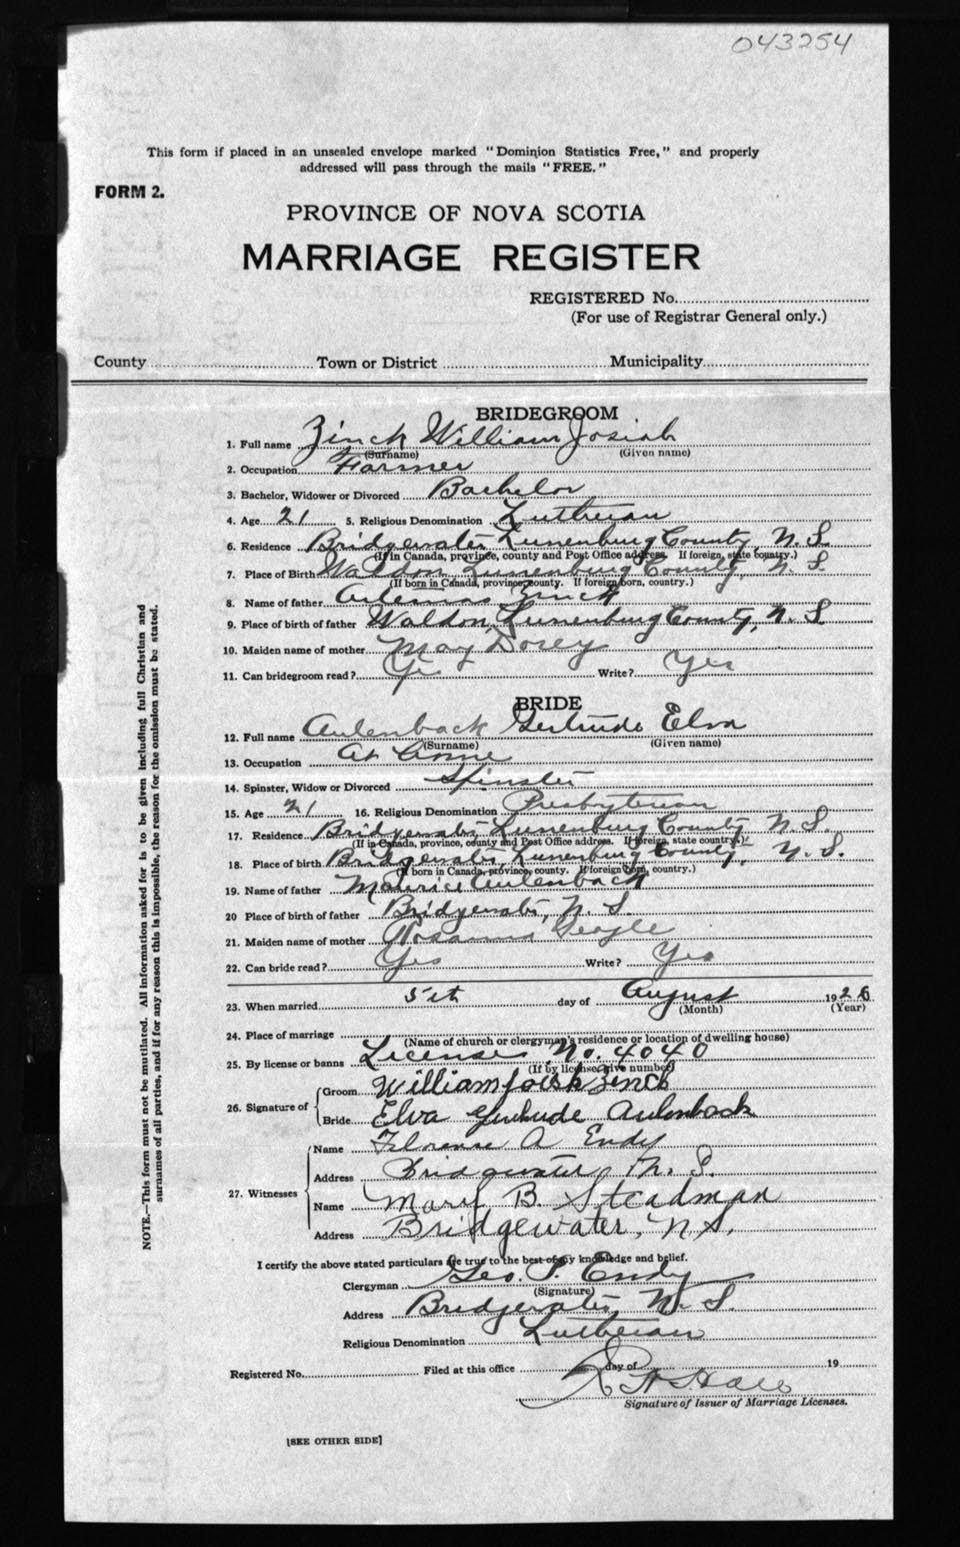 043254
This form if placed in an unsealed envelope marked "Dominion Statistics Free," and properly
addressed will pass through the mails "FREE."
FORM 2.
PROVINCE OF NOVA SCOTIA
MARRIAGE REGISTER
REGISTERED No.
(For use of Registrar General only.)
County Town or District Municipality
BRIDEGROOM
1. Full name Zinck William Josiah
(Surname) (Given name)
2. Occupation Farmer
3. Bachelor, Widower or Divorced Bachelor
4. Age 21 5. Religious Denomination Lutheran
6. Residence Bridgewater Lunenburg County, N. S.
(If in Canada, province, county and Post Office address. If foreign, state country.)
7. Place of Birth Waldon Lunenburg County, N. S
(If born in Canada, province, county. If foreign born, country.)
8. Name of father Artemas Zinck
9. Place of birth of father Waldon, Lunenburg County, N. S
10. Maiden name of mother May Dorey
11. Can bridegroom read? Yes Write? Yes
BRIDE
12. Full name Aulenback Gertrude Elva
(Surname) (Given name)
13. Occupation At home
14. Spinster, Widow or Divorced Spinster
15. Age 21 16. Religious Denomination Presbyterian
17. Residence Bridgewater, Lunenburg County N. S.
(If in Canada, province, county and Post Office address. If foreign, state country.)
18. Place of birth Bridgewater, Lunenburg County, N. S.
(If born in Canada, province, county. If foreign born, country.)
19. Name of father Maurice Aulenback
20 Place of birth of father Bridgewater, N. S.
21. Maiden name of mother
22. Can bride read? Yes Write? Yes
23. When married 5th day of August 1926
(Month) (Year)
24. Place of marriage
(Name of church or clergyman's residence or location of dwelling house)
25. By license or banns License No. 4040
(If by license, give number)
26. Signature of
Groom William Josiah Zinck
Bride Elva Gertrude Aulenback
27. Witnesses
Name Florence A Endy
Address Bridgewater, N. S.
Name Mary B. Steadman
Address Bridgewater, N.S.
I certify the above stated particulars are true to the best of my knowledge and belief.
Clergyman Geo. P. Endy
(Signature)
Address Bridgewater, N. S.
Religious Denomination Lutheran
Registered No. Filed at this office day of 19
Signature of Issuer of Marriage Licenses.
[SEE OTHER SIDE]
NOTE.—This form must not be mutilated. All information asked for is to be given including full Christian and
surnames of all parties, and if for any reason this is impossible, the reason for the omission must be stated.